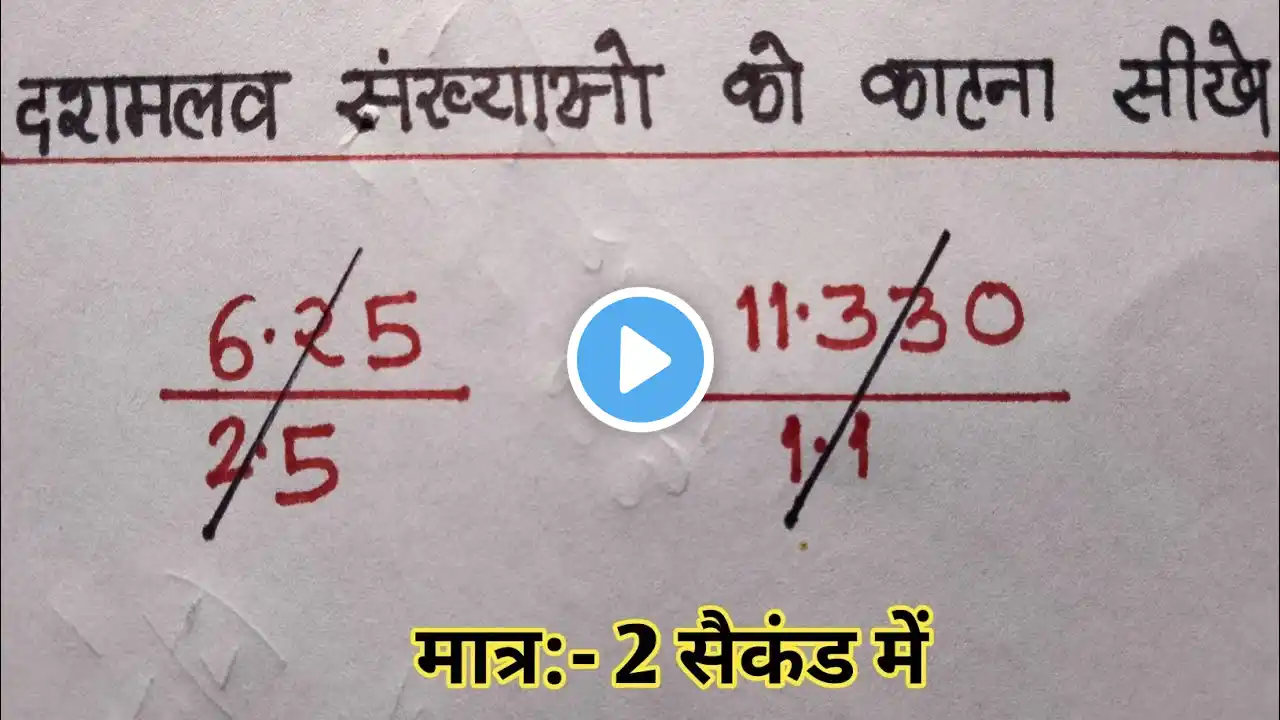 दशमलव संख्याओ को काटना सीखे
6.25 11.330
2.5 1.1
मात्र:- 2 सैकंड में